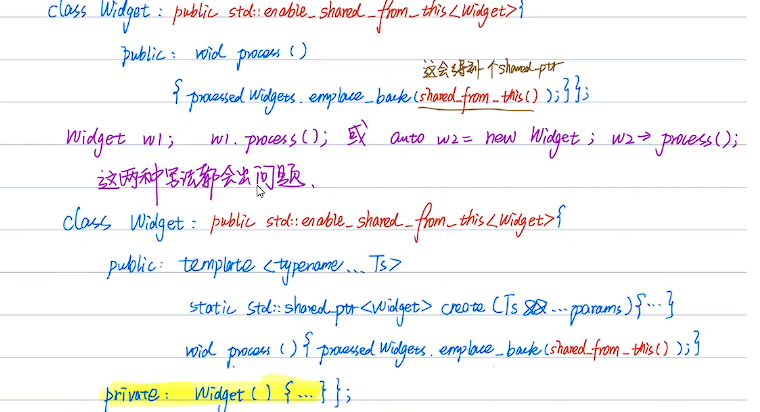 class Widget : public std::enable_shared_from_this<Widget>{
public: void process()
这会得到一个shared_ptr
{ processedWidgets.emplace_back(shared_from_this());}};
Widget w1; w1.process(); 或 auto w2 = new Widget; w2->process();
这两种写法都会出问题.
class Widget: public std::enable_shared_from_this<Widget>{
public: template <typename... Ts>
static std::shared_ptr<Widget> create (Ts&&...params){...}
void process(){ processedWidgets.emplace_back(shared_from_this());}
private: Widget() {...}};